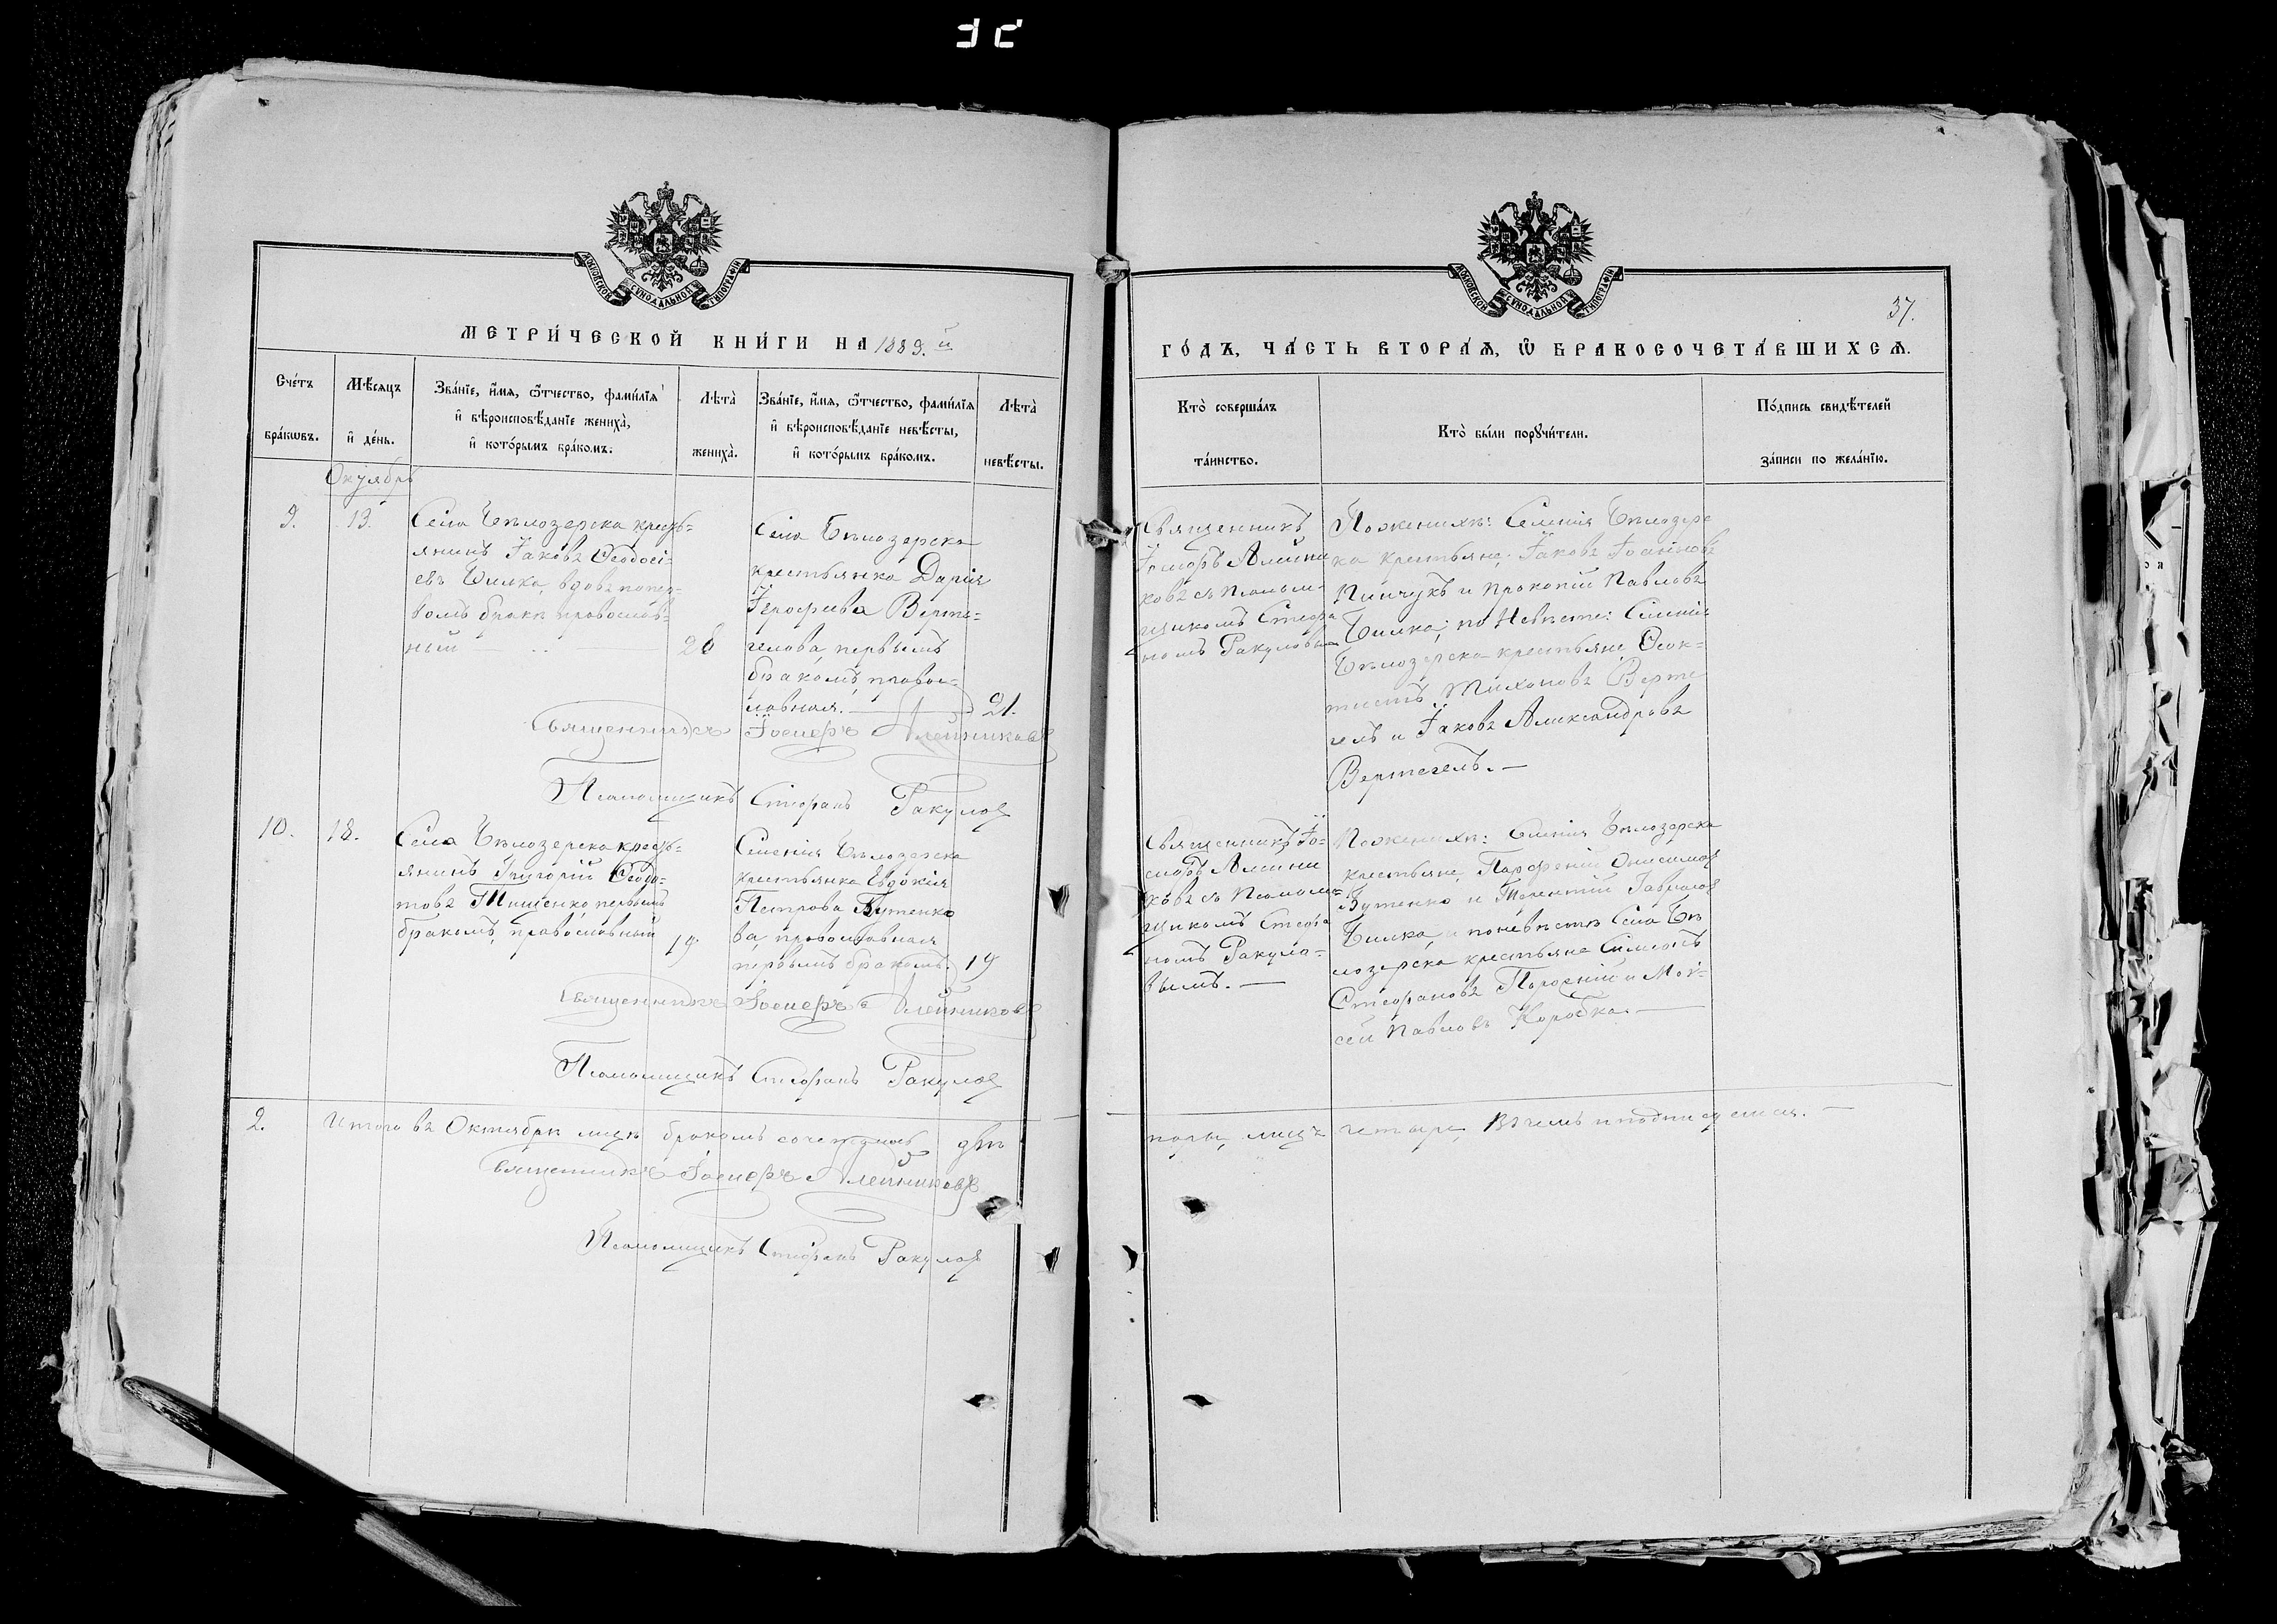 МОСКОВСКОЙ СѴНОДАЛЬНОЙ ТИПОГРАФІИ
МЕТРИ́ЧЕСКОЙ КНИ́ГИ НА 1889.й
Сче́тъ бра́кѡвъ.
Мѣ́сяцъ и҆ де́нь.
Зва́нїе, и҆́мѧ, ѻ҆́тчество, фами́лїѧ
и҆ вѣроисповѣ́данїе жениха̀,
и҆ кото́рымъ бра́комъ.
Лѣта̀ жениха̀.
Зва́нїе, и҆́мѧ, ѻ҆́тчество, фами́лїѧ
и҆ вѣроисповѣ́данїе невѣ́сты,
и҆ кото́рымъ бра́комъ.
Лѣта̀ невѣ́сты.
Октябрь
9.
13.
Села Бѣлозерска кресть-
янинъ Іаковъ Ѳеодосі-
евъ Билка, вдовъ попер-
вомъ бракѣ православ-
ный
26
Села Бѣлозерска
крестьянка Дарія
Іерофеива Верте-
гелова, первымъ
бракомъ, правос-
лавная.
21.
Священникъ Іосифъ Алейниковъ
Псаломщикъ Стефанъ Ракулов
10.
18.
Села Бѣлозерска кресть-
янинъ Григорій Ѳеодо-
товъ Тищенко, первымъ
бракомъ, православный
19
Селенія Бѣлозерска
крестьянка Евдокія
Петрова Бутенко
ва, православная
первымъ бракомъ.
19
Священникъ Іосифъ Алейниковъ
Псаломщикъ Стефанъ Ракулов
2.
Итого въ Октябрѣ мцѣ бракомъ сочеталось двѣ
Священникъ Іосифъ Алейниковъ
Псаломщикъ Стефанъ Ракулов
МОСКОВСКОЙ СѴНОДАЛЬНОЙ ТИПОГРАФІИ
37.
ГО́ДЪ, ЧА́СТЬ ВТОРА́Ѧ, Ѽ БРАКОСОЧЕТА́ВШИХСѦ.
Кто̀ соверша́лъ та́инство.
Кто̀ бы́ли порꙋчи́тели.
По́дпись свидѣ́телей за́писи по жела́нїю.
Священникъ
Іосифъ Алейни
ковъ съ Псалом-
щикомъ Стефа
номъ Ракуловым
Поженихѣ: Селенія Бѣлозерс
ка крестьяне, Іаковъ Іоанновъ
Пинчукъ и Прокопій Павловъ
Билка; по Невѣсте: Селенія
Бѣлозерска крестьяне Ѳеок-
тистъ Тихоновъ Верте
гелъ и Іаковъ Александровъ
Вертегелъ.—
Священникъ Іо-
сифъ Алейни
ковъ съ Псалом-
щикомъ Стефа
номъ Ракуло-
вымъ.—
Поженихѣ: Селенія Бѣлозерска
крестьяне, Парфеній Онисимов
Бутенко и Терентій Гаврилов
Билка, и поневѣстѣ Села Бѣ
лозерска крестьяне Симеонъ
Стефановъ и Мои-
сей Павловъ Коробка.—
пары, лицъ четыре, Въ чемъ и подписуемся.—